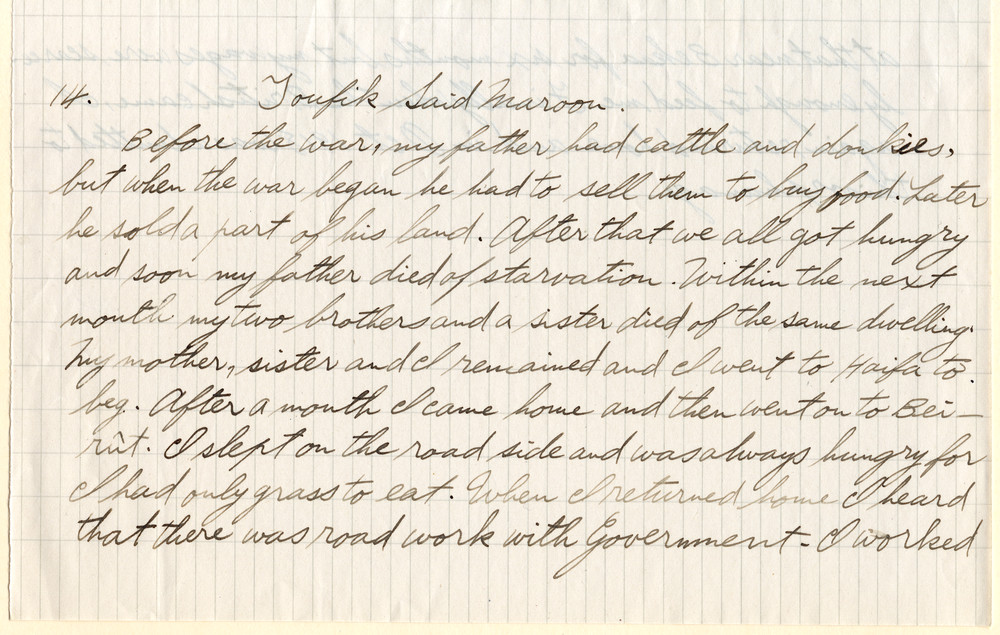 14. Toufik Said Maroon.
Before the war, my father had cattle and donkies,
but when the war began he had to sell them to buy food. Later
he sold a part of his land. After that we all got hungry
and soon my father died of starvation. Within the next
month my two brothers and a sister died of the same dwelling.
My mother, sister and I remained and I went to Haifa to.
beg. After a month I came home and then went on to Bei-
rût. I slept on the road side and was always hungry for
I had only grass to eat. When I returned home I heard
that there was road work with Government - I worked